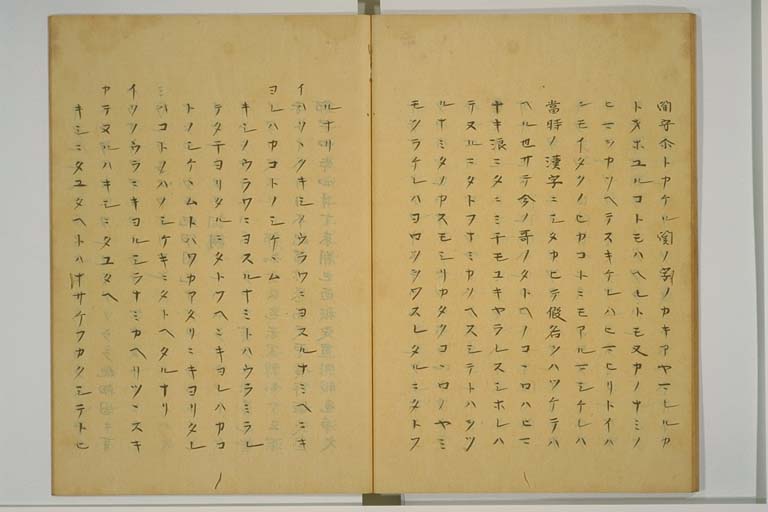 閑字ホトカケル閑ノ字ノカキアヤマレルカ
トオホユルコトモハヘレトモ又カノナミノ
ヒマツカツヘテスキケレハヒマヒリトイハ
ンモイタクノヒカコトニモアルマシケレハ
當時ノ漢字ニシタカヒテ假名ツハツケテハ
ヘル也サテ今ノ哥ノタトヘノコヽロハヒマ
ナキ浪ニタニミチモユキヤラレスシホレハ
テヌルニタトフナミカツヘスシテトハツツ
ルナミタノヤスモシリカタクコヽロノヤミ
モツラケレハヨロツツワスレタルニタトフ
ルナリ
イハリヽクキシノウラワニヨスルナミヘニキ
ヨレハカコトノシケヽム
キシノウラワニヨスルナミトハウラミラレ
テタチヨリタルニタトウヘニキヨレハカコ
トノシケヽムトハワカアタリニキヨリタレ
ハコトノハノシケキニタトヘタルナリ
イツノウラニキヨルシラナミカヘリツヽスキ
カテヌルハキシニタユタヘ
キシニタユタヘトハナサケフカクシテトヒ